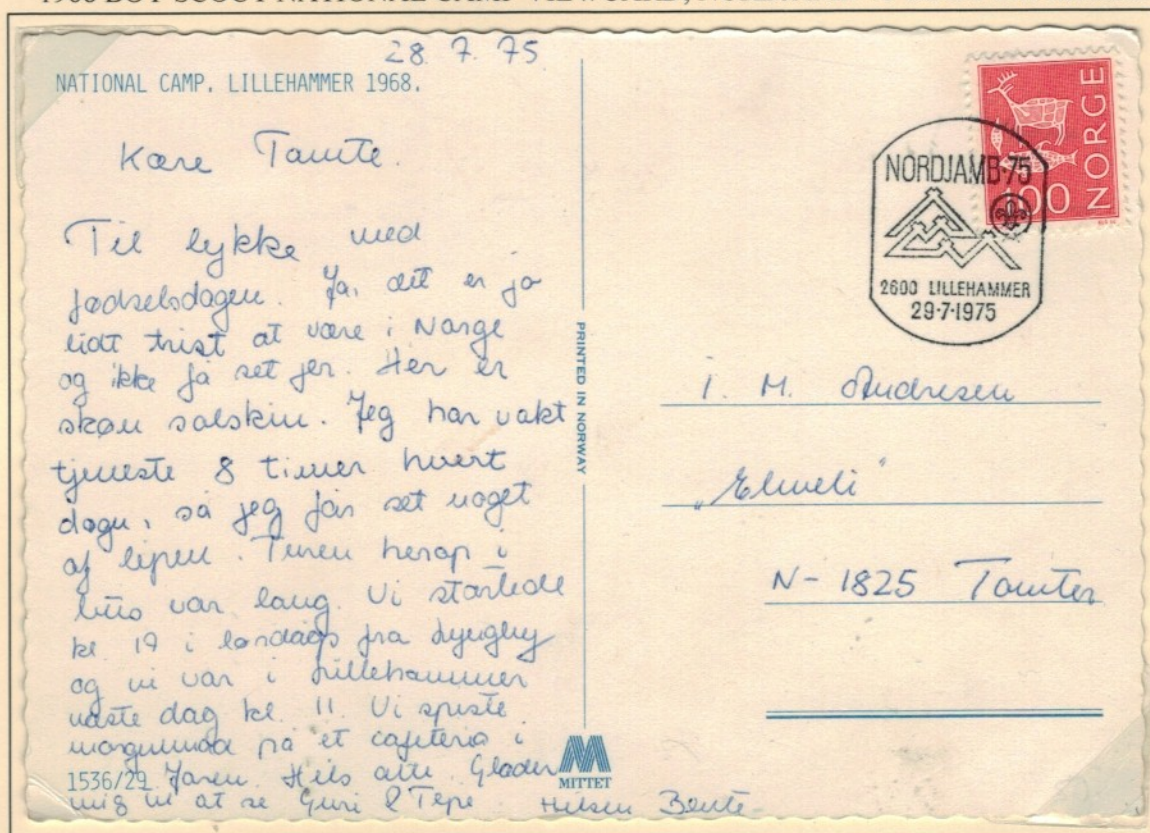 28. 7. 75
NATIONAL CAMP. LILLEHAMMER 1968.
Kære Tamte.
Til lykke med
fødselsdagen. Ja, det er jo
lidt trist at være i Norge
og ikke få set jer. Her er
skøn solskin. Jeg har vakt
tjeneste 8 timer hvert
døgn, så jeg får set noget
af lejren. Turen herop i
bus var lang. Vi startede
kl. 19 i lørdags fra Lyngby
og vi var i Lillehammer
næste dag kl. 11. Vi spiste
morgenmad på et cafeteria i
Hils alle. Glæder
mig til at se Guri & Tepe. Hilsen Bente
1536/29
PRINTED IN NORWAY
MITTET
NORGE
100
NORDJAMB-75
2600 LILLEHAMMER
29-7-1975
I. M. Andresen
"Elveli"
N-1825 Tomter